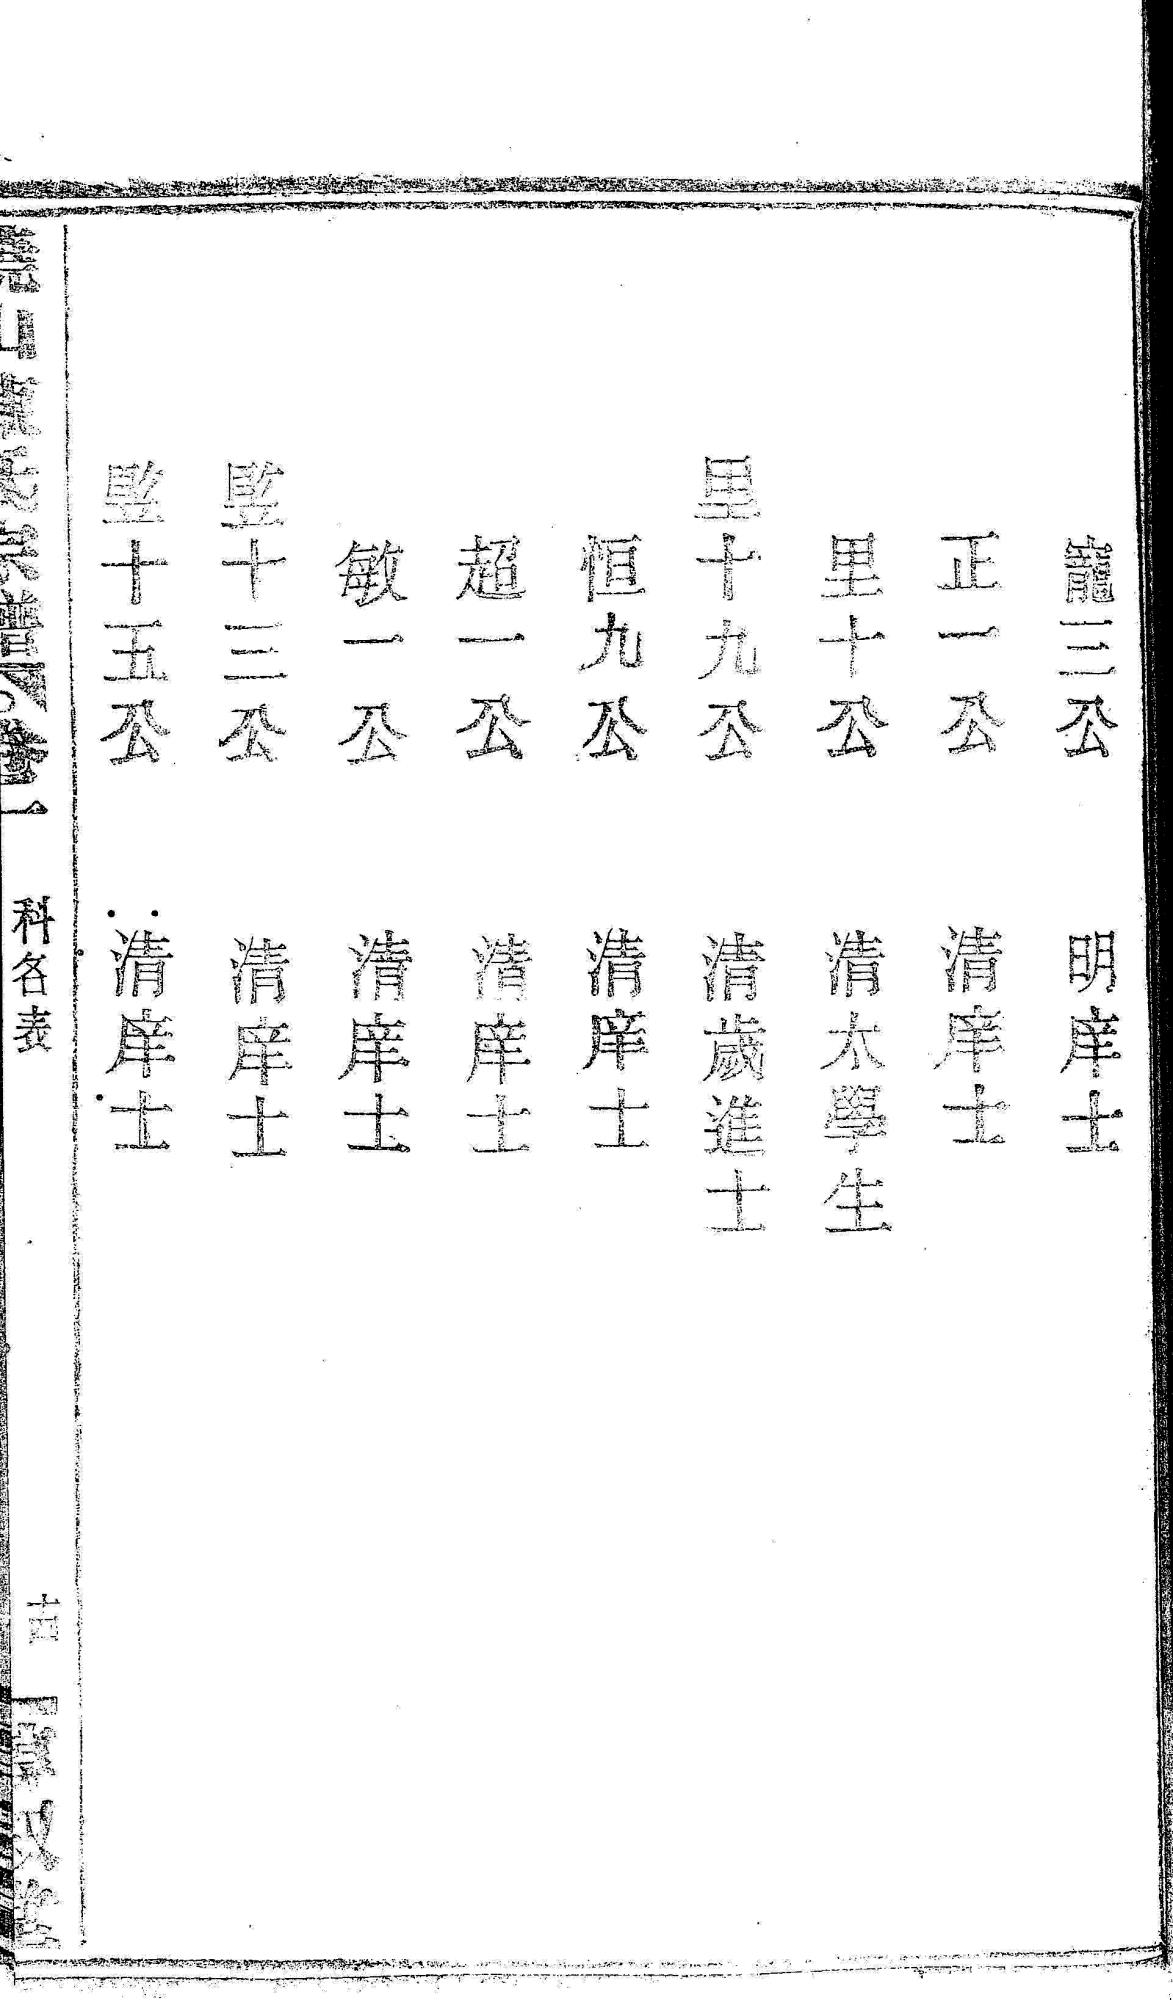 寵三公　明庠士
正一公　清庠士
里十公　清太學生
里十九公　清歲進士
恒九公　清庠士
超一公　清庠士
敏一公　清庠士
竖十三公　清庠士
竖十五公　清庠士
山 氏宗譜 卷一　科名表　十四